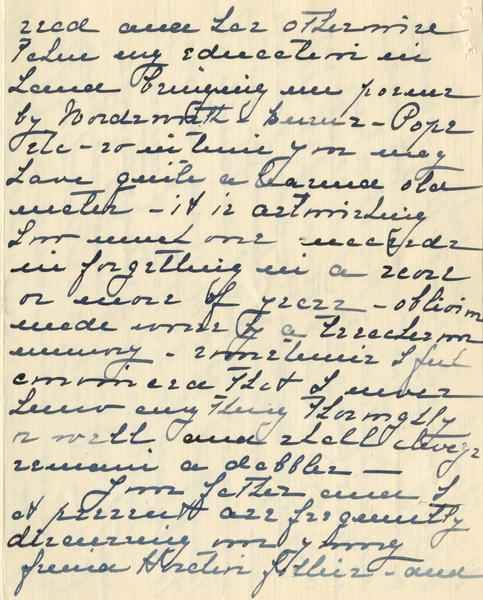 read and has otherwise
taken my education in
hand bringing me poems
by Wordsworth & Burns - Pope
etc - so in time you may
have quite a learned old
mater - it is astonishing
how much one succeeds
in forgetting in a score
or more of years - oblivion
made worse by a treacherous
memory - sometimes I feel
convinced that I never
knew anything thoroughly
or well and shall always
remain a dabbler —
Your father and I
at present are frequently
discussing our young
friend follies - and